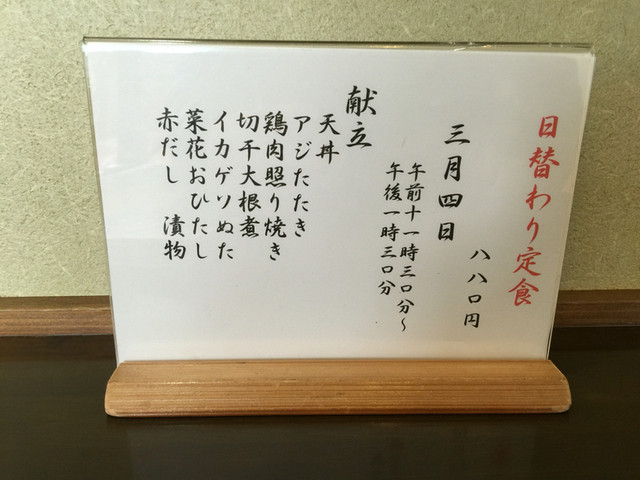 日替わり定食
八八〇円
三月四日
午前十一時三〇分～
午後一時三〇分
献立
天丼
アジたたき
鶏肉照り焼き
切干大根煮
イカゲソぬた
菜花おひたし
赤だし　漬物